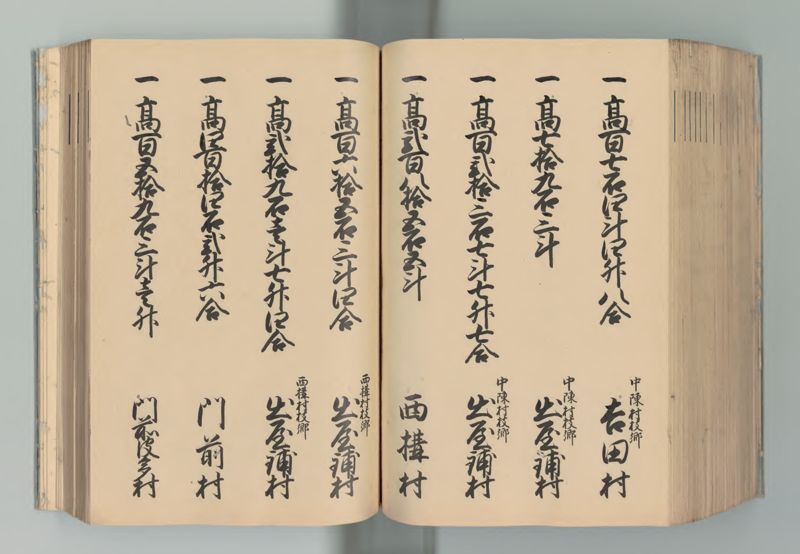 一 高百七石四斗四升八合
中陳村枝郷
吉田村
一 高七拾九石三斗
中陳村枝郷
出屋鋪村
一 高百弐拾三石七斗七升七合
中陳村枝郷
出屋鋪村
一 高弐百八拾五石五斗
西構村
一 高百六拾五石三斗四合
西構村枝郷
出屋鋪村
一 高弐拾九石壱斗七升四合
西構村枝郷
出屋鋪村
一 高四百拾四石弐升六合
門前村
一 高百五拾九石三斗壱升
門前
村